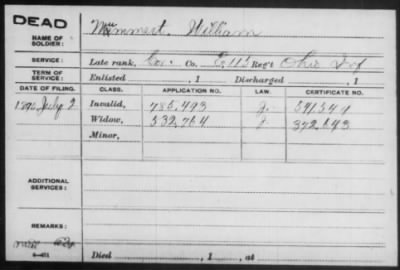 DEAD
NAME OF SOLDIER: Wimmert, William
SERVICE: Late rank, Cor. Co. E 115 Reg't Ohio Inf
TERM OF SERVICE: Enlisted , 1 Discharged , 1
DATE OF FILING. CLASS. APPLICATION NO. LAW. CERTIFICATE NO.
1890 July 2 Invalid, 785,493 J.
Widow, 532,764 J. 372,643
Minor,
ADDITIONAL SERVICES:
REMARKS:
Died , 1 , at